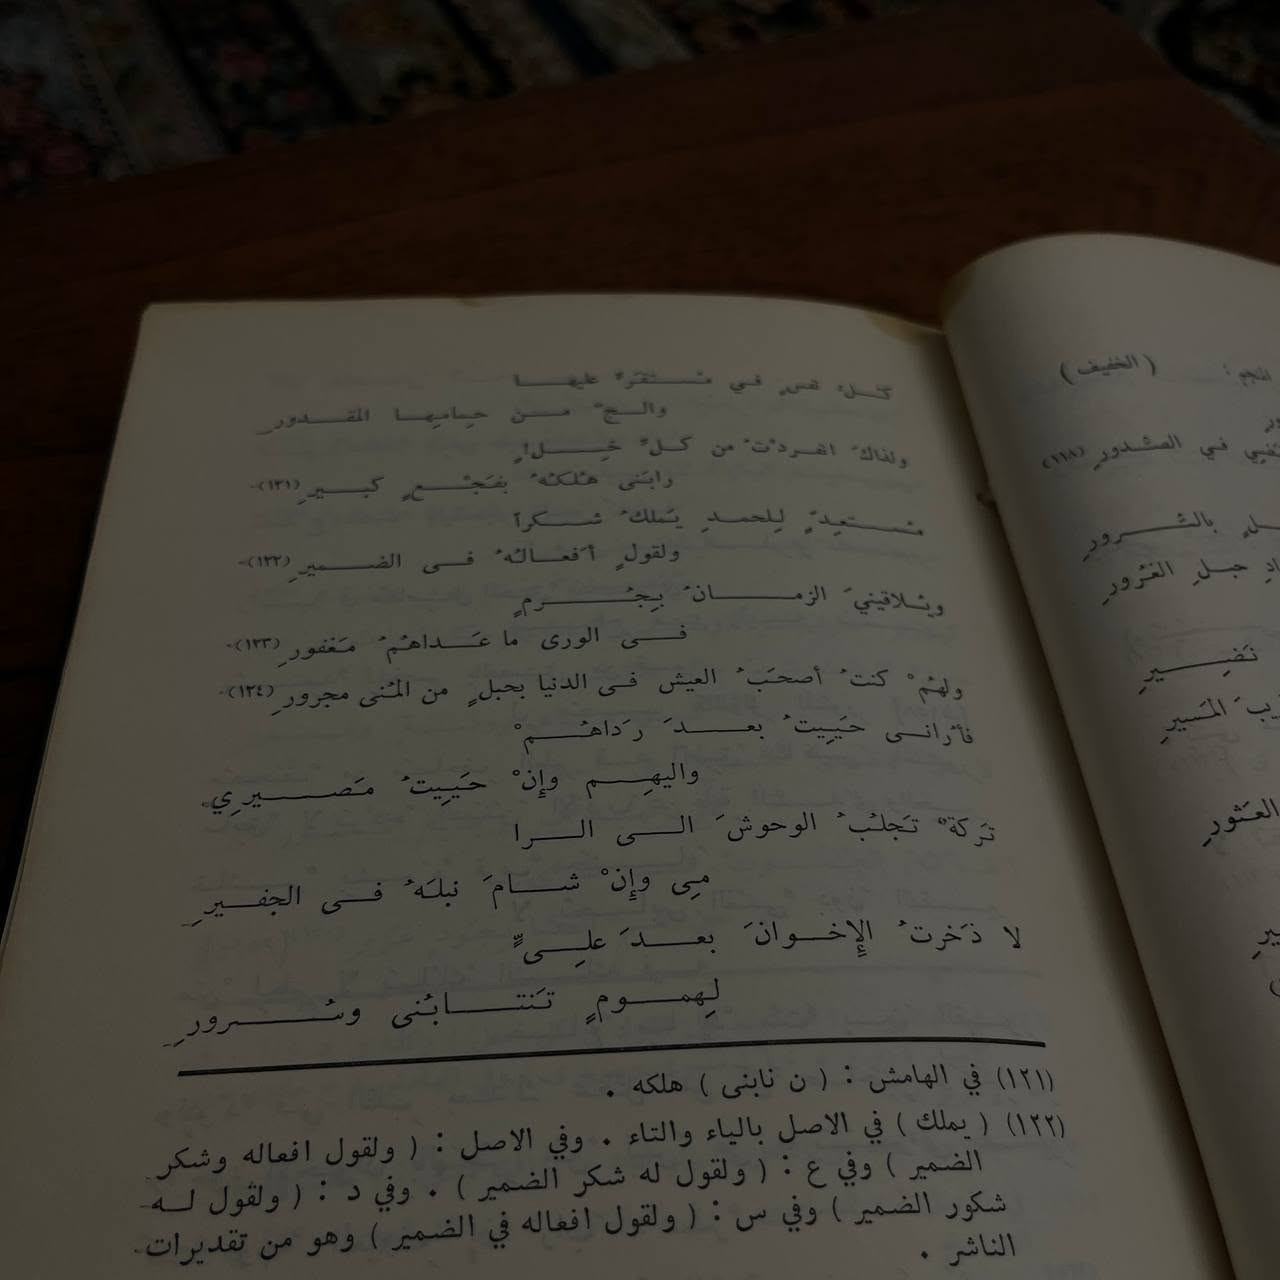 كلُّ نفسٍ في مُستَقَرٍّ عليها
والجٌ من حِمامِها المقدورِ
من كلِّ خِلٍّ
رابَنى هُلكُهُ بفَجْعٍ كبيرِ (١٢١)
مُستَعِدٍّ لِلحمدِ يَملكُ شكراً
ولقولٍ أفعالُهُ فى الضميرِ (١٢٢)
ويُلاقينيَ الزمانُ بِجُرمٍ
فى الورى ما عَداهُمُ مَغفورِ (١٢٣)
ولهُمْ كنتُ أصحَبُ العيش فى الدنيا بحبلٍ من المُنى مجرورِ (١٢٤)
فأرانى حَيَيِتُ بعدَ رَداهُمْ
واليهِم وإِنْ حَيَيِتُ مَصيرِي
تَركةٌ تَجلُبُ الوحوشَ الى الرا
مِى وإِنْ شامَ نبلَهُ فى الجفيرِ
لا ذَخرتُ الإِخوانَ بعدَ علِىٍّ
لِهمومٍ تَنتابُنى وسُرورِ
(١٢١) في الهامش : ( ن نابنى ) هلكه .
(١٢٢) ( يملك ) في الاصل بالياء والتاء . وفي الاصل : ( ولقول افعاله وشكر
الضمير ) وفي ع : ( ولقول له شكر الضمير ) . وفي د : ( ولقول له
شكور الضمير ) وفي س : ( ولقول افعاله في الضمير ) وهو من تقديرات
الناشر .
( الخفيف )
في الصدورِ (١١٨)
بالشرورِ
جلِ الغُرورِ
نَضِيرِ
المَسيرِ
العَثورِ